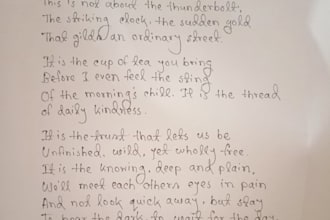 This is not about the thunderbolt,
The striking clock, the sudden gold
That gilds an ordinary street.
It is the cup of tea you bring
Before I even feel the sting
Of the morning's chill. It is the thread
of daily kindness.
It is the trust that lets us be
Unfinished, wild, yet wholly free.
It is the knowing, deep and plain,
We'll meet each others eyes in pain
And not look quick away, but stay
To hear the dark to wait for the day.